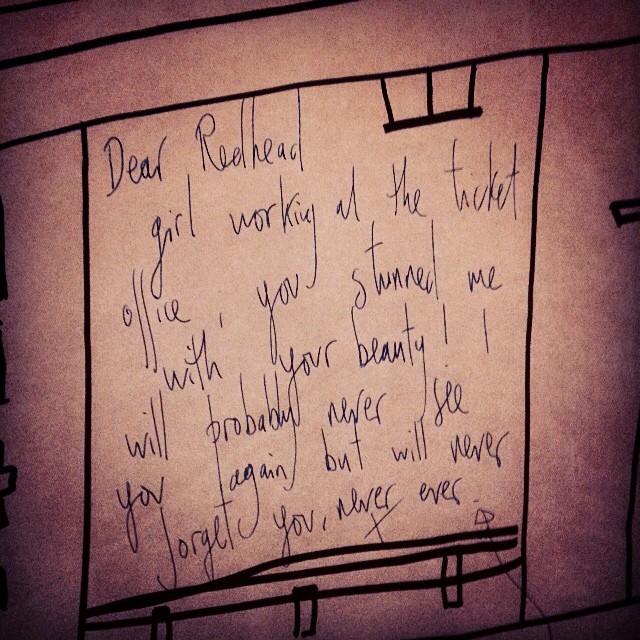 Dear Redhead
girl working at the ticket
office, you stunned me
with your beauty! I
will probably never see
you again but will never
forget you, never ever.